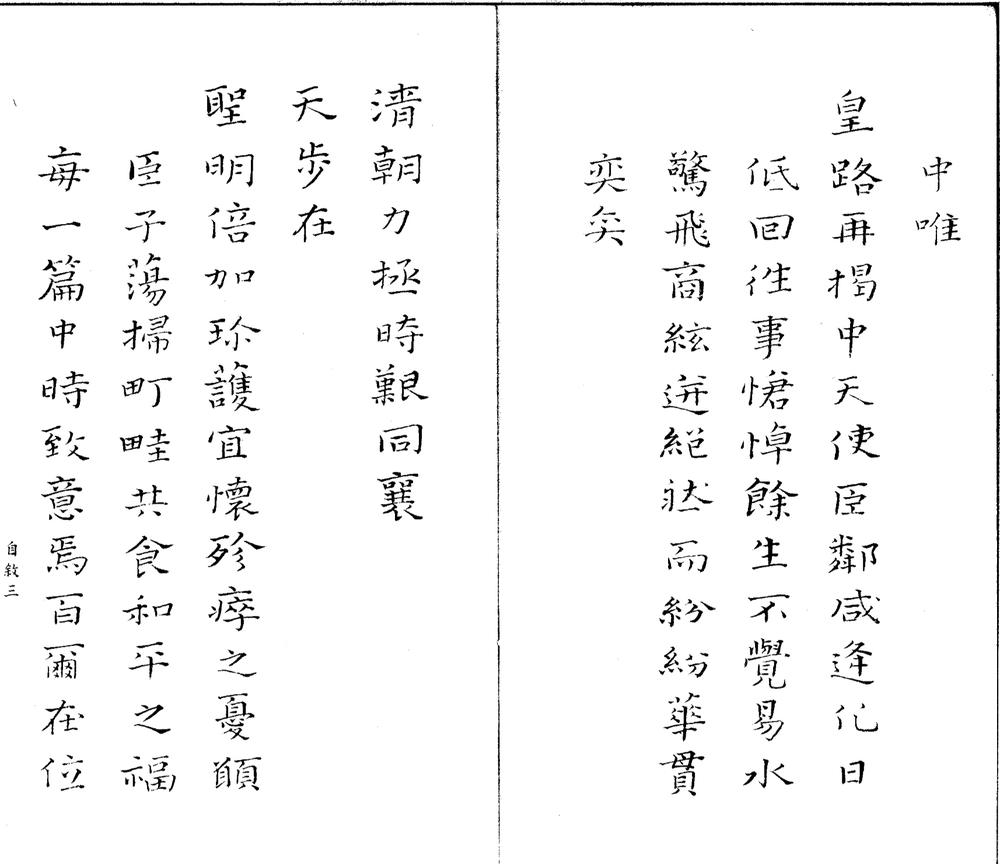 中唯
皇路再揭中天使臣鄰咸逢化日
低回徃事愴悼餘生不覺易水
驚飛商絃迸絕然而紛紛華貫
奕奕
清朝力拯時艱同襄
天步在
聖明倍加珍護宜懷殄瘁之憂願
臣子蕩掃町畦共食和平之福
每一篇中時致意焉百爾在位
自敘三